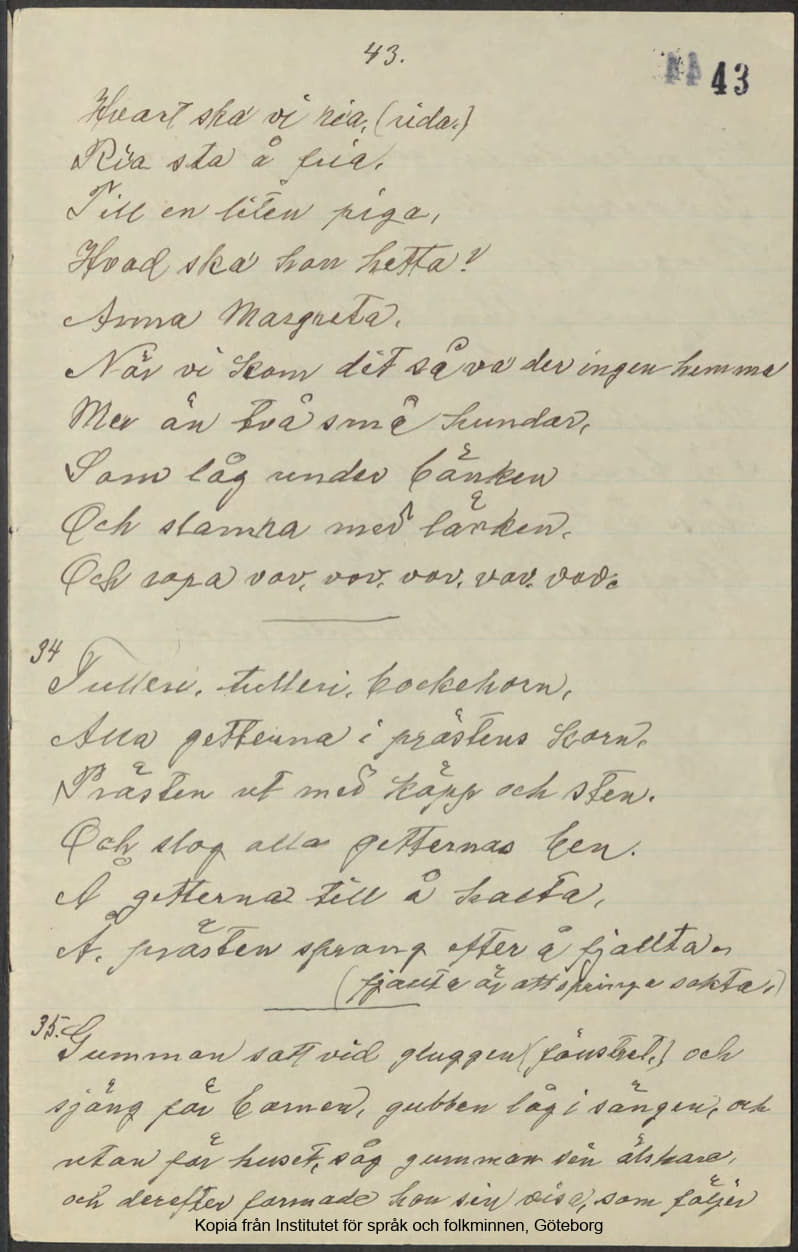 43.
44 43
Hvart ska vi ria, (rida.)
Ria sta å fria.
Till en liten piga,
Hvad ska hon hetta?
Anna Margreta.
När vi kom dit så va der ingen hemma
Mer än två små hundar,
Som låg under bänken
Och slamra med länken.
Och ropa vov, vov, vov, vov, vov.
34
Tulleri, tulleri, bockehorn,
Alla getterna i prästens korn.
Prästen ut med käpp och sten.
Och slog alla getternas ben.
Å getterna till å halta,
Å prästen sprang efter å fjallta.
(fjallta är att springa sakta.)
35. Gumman satt vid gluggen (fönstret,) och
sjäng för barnen, gubben låg i sängen, och
utan för huset, såg gumman sin älskare,
och derefter formade hon sin visa, som följer
Kopia från Institutet för språk och folkminnen, Göteborg